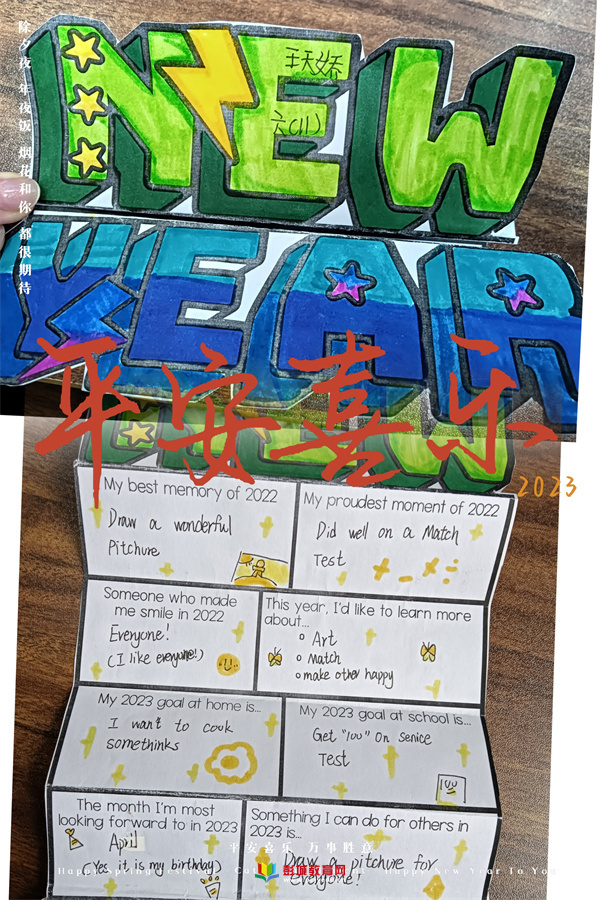 除夕夜 年夜饭 烟花和你 都很期待
NEW
六(11)
YEAR
平安喜乐
2023
My best memory of 2022
Draw a wonderful
Pitchure
My proudest moment of 2022
Did well on a Match
Test
Someone who made
me smile in 2022
Everyone!
(I like everyone!)
This year, I'd like to learn more
about...
Art
Match
make other happy
My 2023 goal at home is...
I want to cook
somethinks
My 2023 goal at school is...
Get "100" on senice
Test
100
The month I'm most
looking forward to in 2023
April
(Yes it is my birthday)
Something I can do for others in
2023 is...
Draw a pitchure for
everyone!
平安喜乐 万事胜意
Happy Spring Festival
彭城教育网
Happy New Year To You